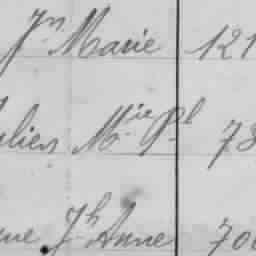 Jn Marie 121
Julien Mie Pl 78
Jh Anne 700